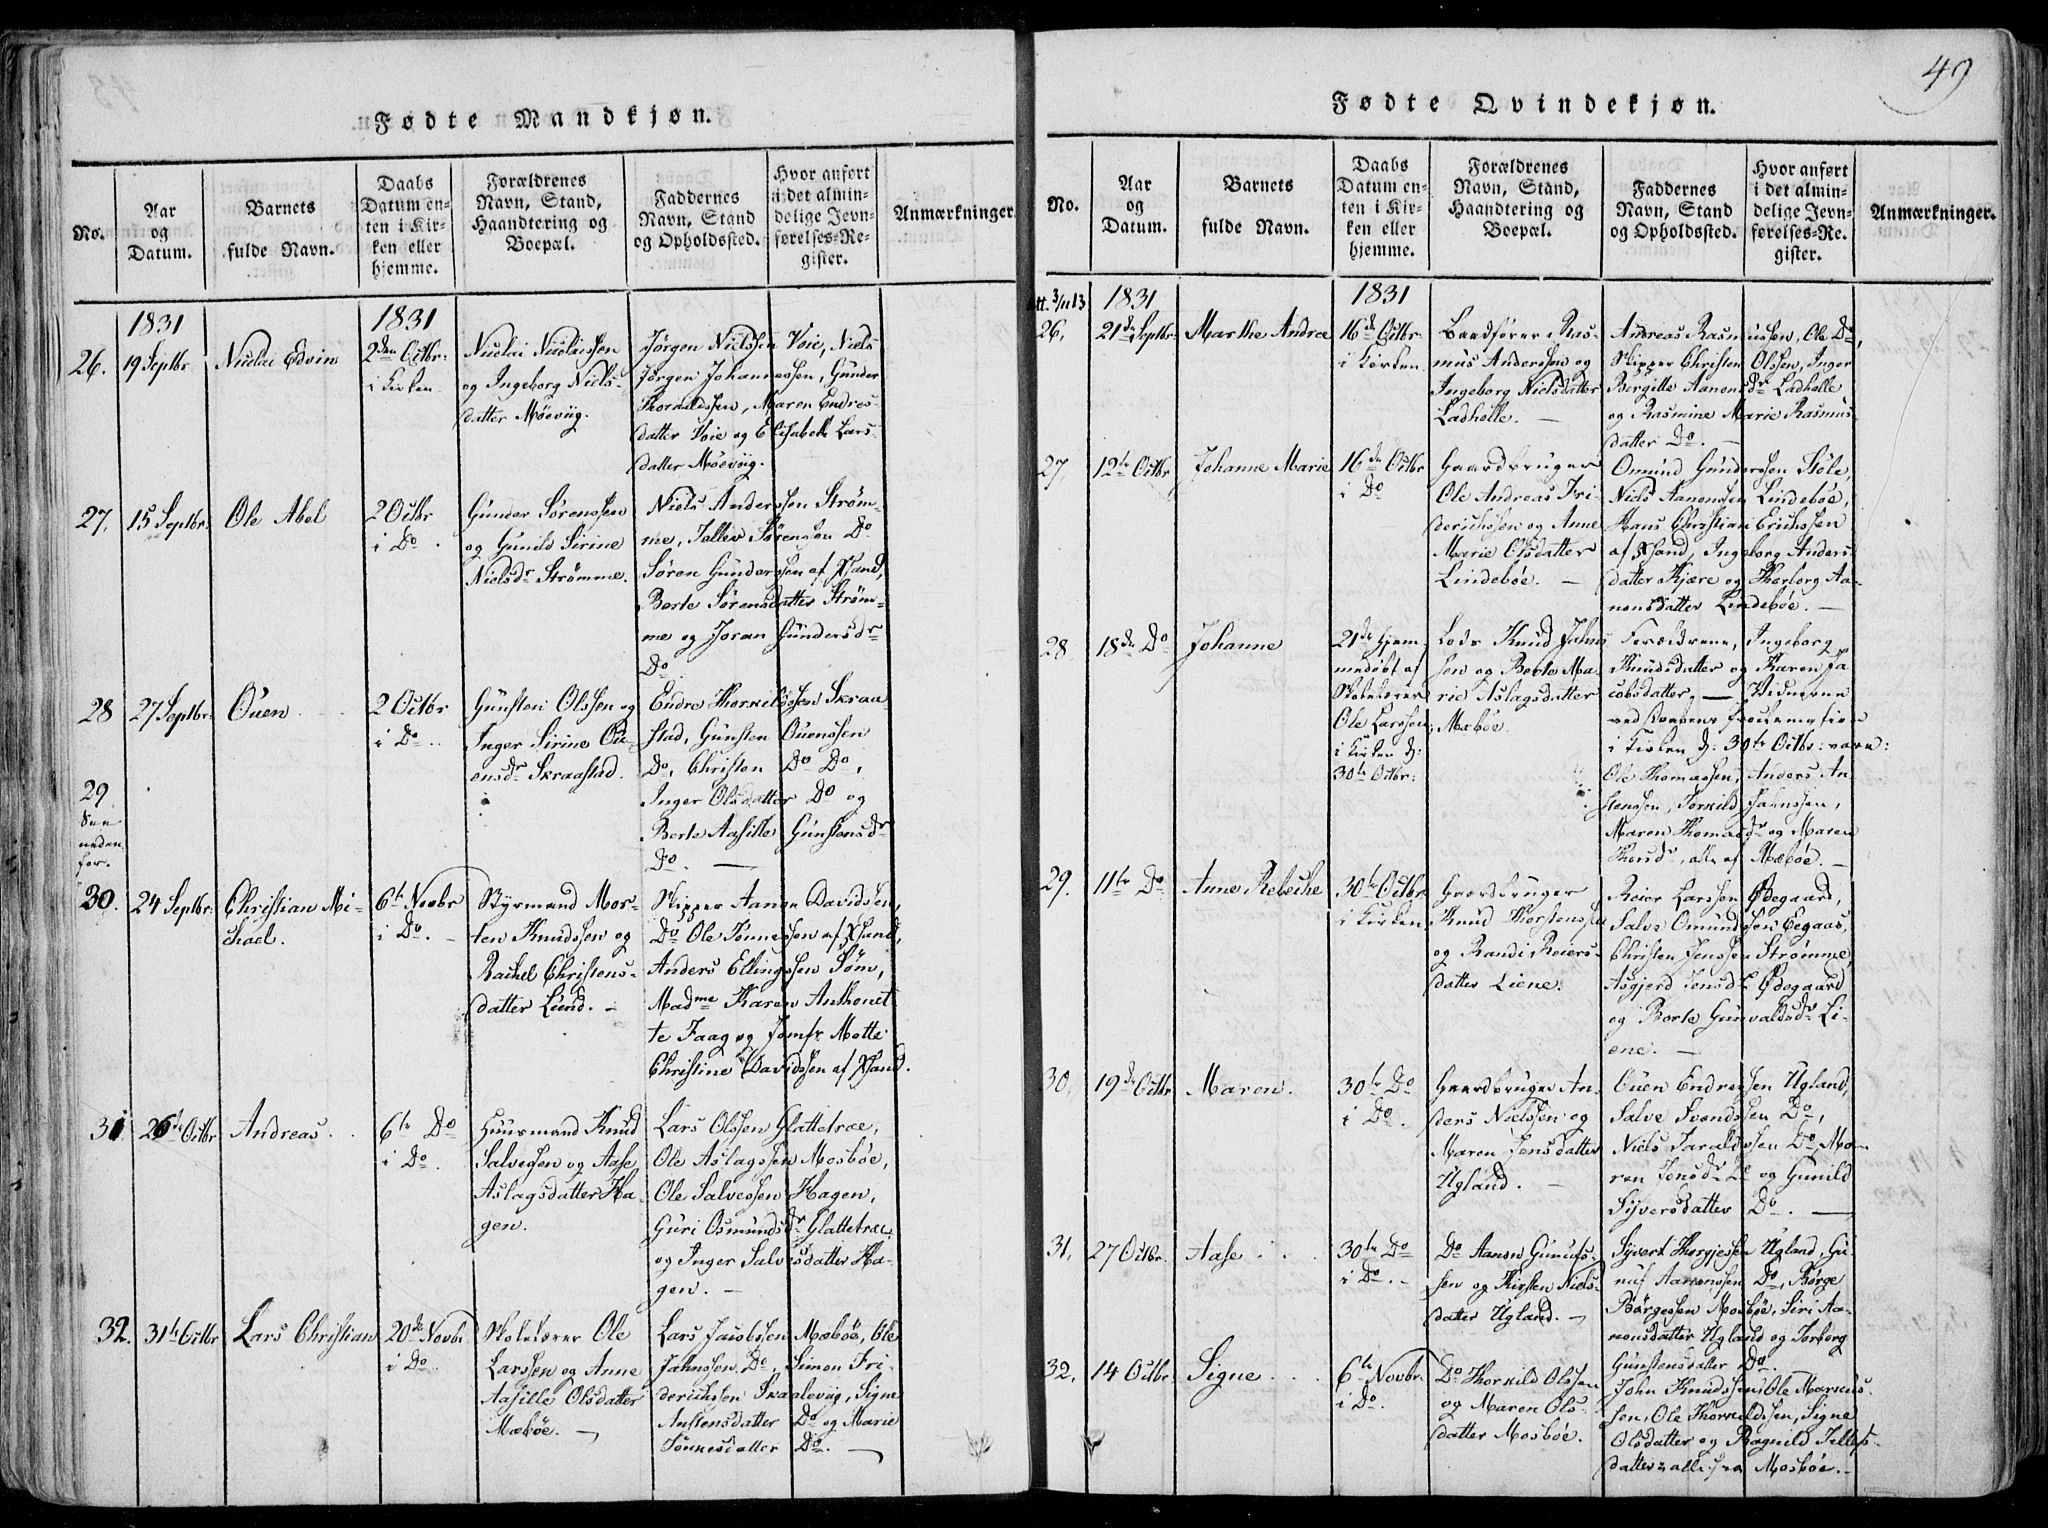 49
Fødte Mandkjøn.
No.
Aar
og
Datum.
Barnets
fulde Navn.
Daabs
Datum en-
ten i Kir-
ken eller
hjemme.
Forældrenes
Navn, Stand,
Haandtering og
Boepæl.
Faddernes
Navn, Stand
og Opholdssted.
Hvor anført
i det almin-
delige Jevn-
førelses-Re-
gister.
Anmærkninger.
1831
1831
26.
19 Septbr
Nicolai Edvin
2den Octbr.
i Kirken.
Nicolai Nicolaissen
og Ingeborg Niels-
datter Møeviig.
Jörgen Nielssen Voie, Niels
Jörgen Johannessen, Gunder
Thorkildssen, Maren Endres-
datter Voie og Elisabeth Lars-
datter Møeviig.
27.
15 Septbr.
Ole Abel
2 Octbr
i Do.
Gunder Sørenssen
og Gunild Sirine
Nielsdr Strømme.
Niels Anderssen Strøm-
me, Tellev Sørensøn Do
Søren Gunderssen af Xsand,
Berte Sørensdatter Strøm-
me og Joran Gundersdr
Do
28
27 Septbr.
Ouen
2 Octbr
i Do.
Gunsten Olssen og
Inger Sirine Ou-
ensdr Skraastad.
Endre Thorkildssen Skraa
stad, Gunsten Ouenssen
Do, Christen Do Do,
Inger Olsdatter Do og
Berte Aasille Gunstensdr
Do.
29
See
neden
for.
30.
24 Septbr.
Christian Mi-
chael.
6te Novbr
i Do.
Styrmand Mor-
ten Knudssen og
Rachel Christens-
datter Lund.
Skipper Aanon Davidsen,
Do Ole Tønnessen af Xsand,
Anders Ellingssen Søm,
Madme Karen Anthonet
te Faag og Jomfr Mette
Christine Davidssen af Xsand.
31.
26de Octbr
Andreas
6te Do
i Do.
Huusmand Knud
Salvessen og Aase
Aslagsdatter Ha-
gen.
Lars Olssen Glattetræ,
Ole Aslagssen Mosbøe,
Ole Salvessen Hagen,
Guri Osmundsdr Glattetræ,
og Inger Salvesdatter Ha-
gen.
32.
31te Octbr
Lars Christian
20de Novbr
i Do
Skolelærer Ole
Larssen og Anne
Aasille Olsdatter
Mæbøe.
Lars Jacobssen Mæbøe, Ole
Jahnssen Do, Simon Fri-
derichssen Skaaleviig, Signe
Anstensdatter Do og Marie
Tønnesdatter Do.
Fødte Qvindekjøn.
No.
Aar
og
Datum.
Barnets
fulde Navn.
Daabs
Datum en-
ten i Kir-
ken eller
hjemme.
Forældrenes
Navn, Stand,
Haandtering og
Boepæl.
Faddernes
Navn, Stand
og Opholdssted.
Hvor anført
i det almin-
delige Jevn-
førelses-Re-
gister.
Anmærkninger.
Att. 3/11 13
1831
1831
26.
21de Septbr
Marthe Andrea
16de Octbr.
i Kirken.
Baadfører Ras-
mus Anderssen og
Ingeborg Nielsdatter
Ladhølle.
Andreas Rasmussen, Ole Do,
Skipper Christen Olssen, Inger
Bergitte Aanonsdr Ladhølle
og Rasmine Marie Rasmus
datter Do.
27.
12te Octbr
Johanne Marie
16de Octbr
i Do
Gaardbruger
Ole Andreas Fri-
derichssen og Anne
Marie Olsdatter
Lindebøe.
Omund Gunderssen Støle,
Niels Aanonssen Lindebøe,
Hans Christian Erichssen
af Xsand, Ingeborg Anders
datter Kjære og Thorborg Aa-
nonsdatter Lindebøe.
28
18de Do
Johanne
21de Hjem
medøbt af
Skolelærer
Ole Larssen,
i Kirken d:
30te Octbr.
Lods Knud Jahns
sen og Berte Ma-
rie Aslagsdatter
Mæbøe.
Forældrene, Ingeborg
Knudsdatter og Karen Ja
cobsdatter, — Vidnerne
ved Daabens Confirmation
i Kirken d: 30te Octbr: vare:
Ole Thomassen, Anders An
stenssen, Torkild Jahnssen,
Maren Thomasdr og Maren
Thorsdr, alle af Mæbøe.
29.
11te Do
Anne Rebecke
30te Octbr
i Kirken
Gaardbruger
Knud Thorstenssen
og Randi Reiers-
datter Liene.
Reier Larssen Ødegaard,
Salve Omundssen Eegaas,
Christen Jenssen Strømme,
Asgjerd Jensdr Ødegaard
og Berte Gunvaldsdr Li-
ene.
30.
19de Octbr
Maren.
30te Do
i Do.
Gaardbruger An-
ders Nielssen og
Maren Jensdatter
Ugland.
Ouen Endressen Ugland,
Salve Svendssen Do,
Niels Taraldssen Do, Ma-
ren Jensdr Do og Gunild
Syversdatter Do.
31.
27 Octbr.
Aase
30te Do
i Do.
Do Aanon Gunufs-
sen og Kirsten Niels-
datter Ugland.
Syvert Thorjessen Ugland, Gu-
nuf Aanonssen Do, Børge
Børgessen Mosbøe, Siri Aa-
nonsdatter Ugland og Torborg
Gunstensdatter Do.
32.
14 Octbr.
Signe
6te Novbr.
i Do.
Do Thorkild Olssen
og Maren Ols-
datter Mosbøe.
John Knudssen, Ole Marcus-
sen, Ole Thorkildssen, Signe
Olsdatter og Ragnild Tellefs-
datter alle fra Mosbøe.